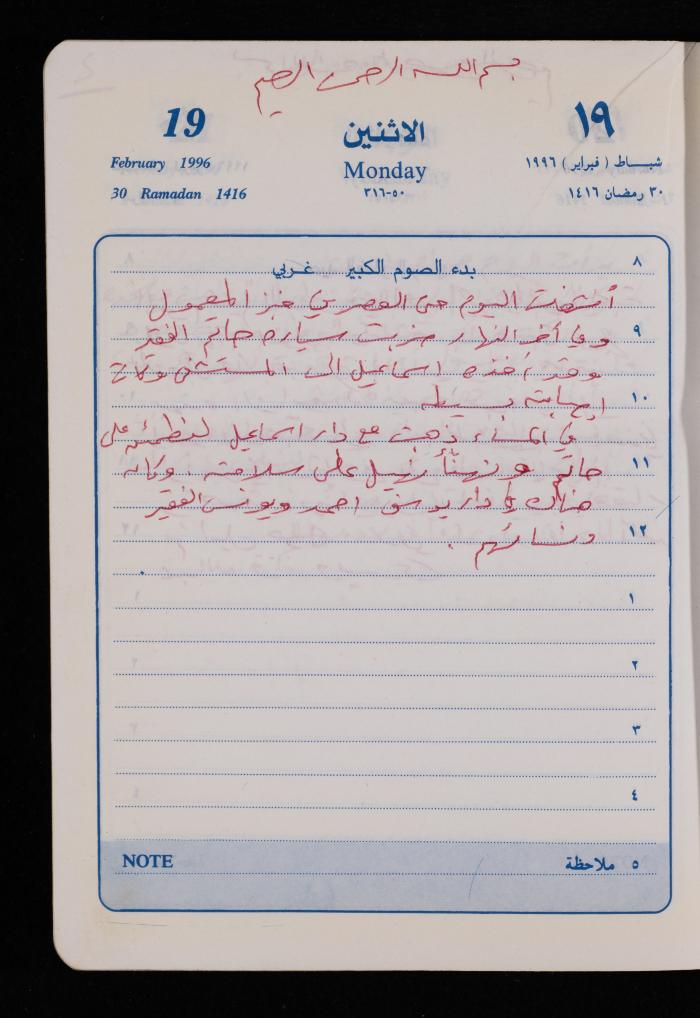 بسم الله الرحمن الرحيم
19
الاثنين
١٩
February 1996
Monday
شباط ( فبراير ) ١٩٩٦
30 Ramadan 1416
٥٠-٣١٦
٣٠ رمضان ١٤١٦
٨
بدء الصوم الكبير غربي
اليوم حتى العصر في خبز المعمول
٩
وفي آخر النهار ضربت سيارة حاتم الفقير
وقد أخذه اسماعيل الى المستشفى وكانت
١٠
إصابته بسيطة
في المساء ذهبت مع دار اسماعيل لنطمئن على
١١
حاتم ونهنأ على سلامته وكان
هناك دار يوسف احمد ويونس الفقير
١٢
ونسائهم .
١
٢
٣
٤
NOTE
٥ ملاحظة